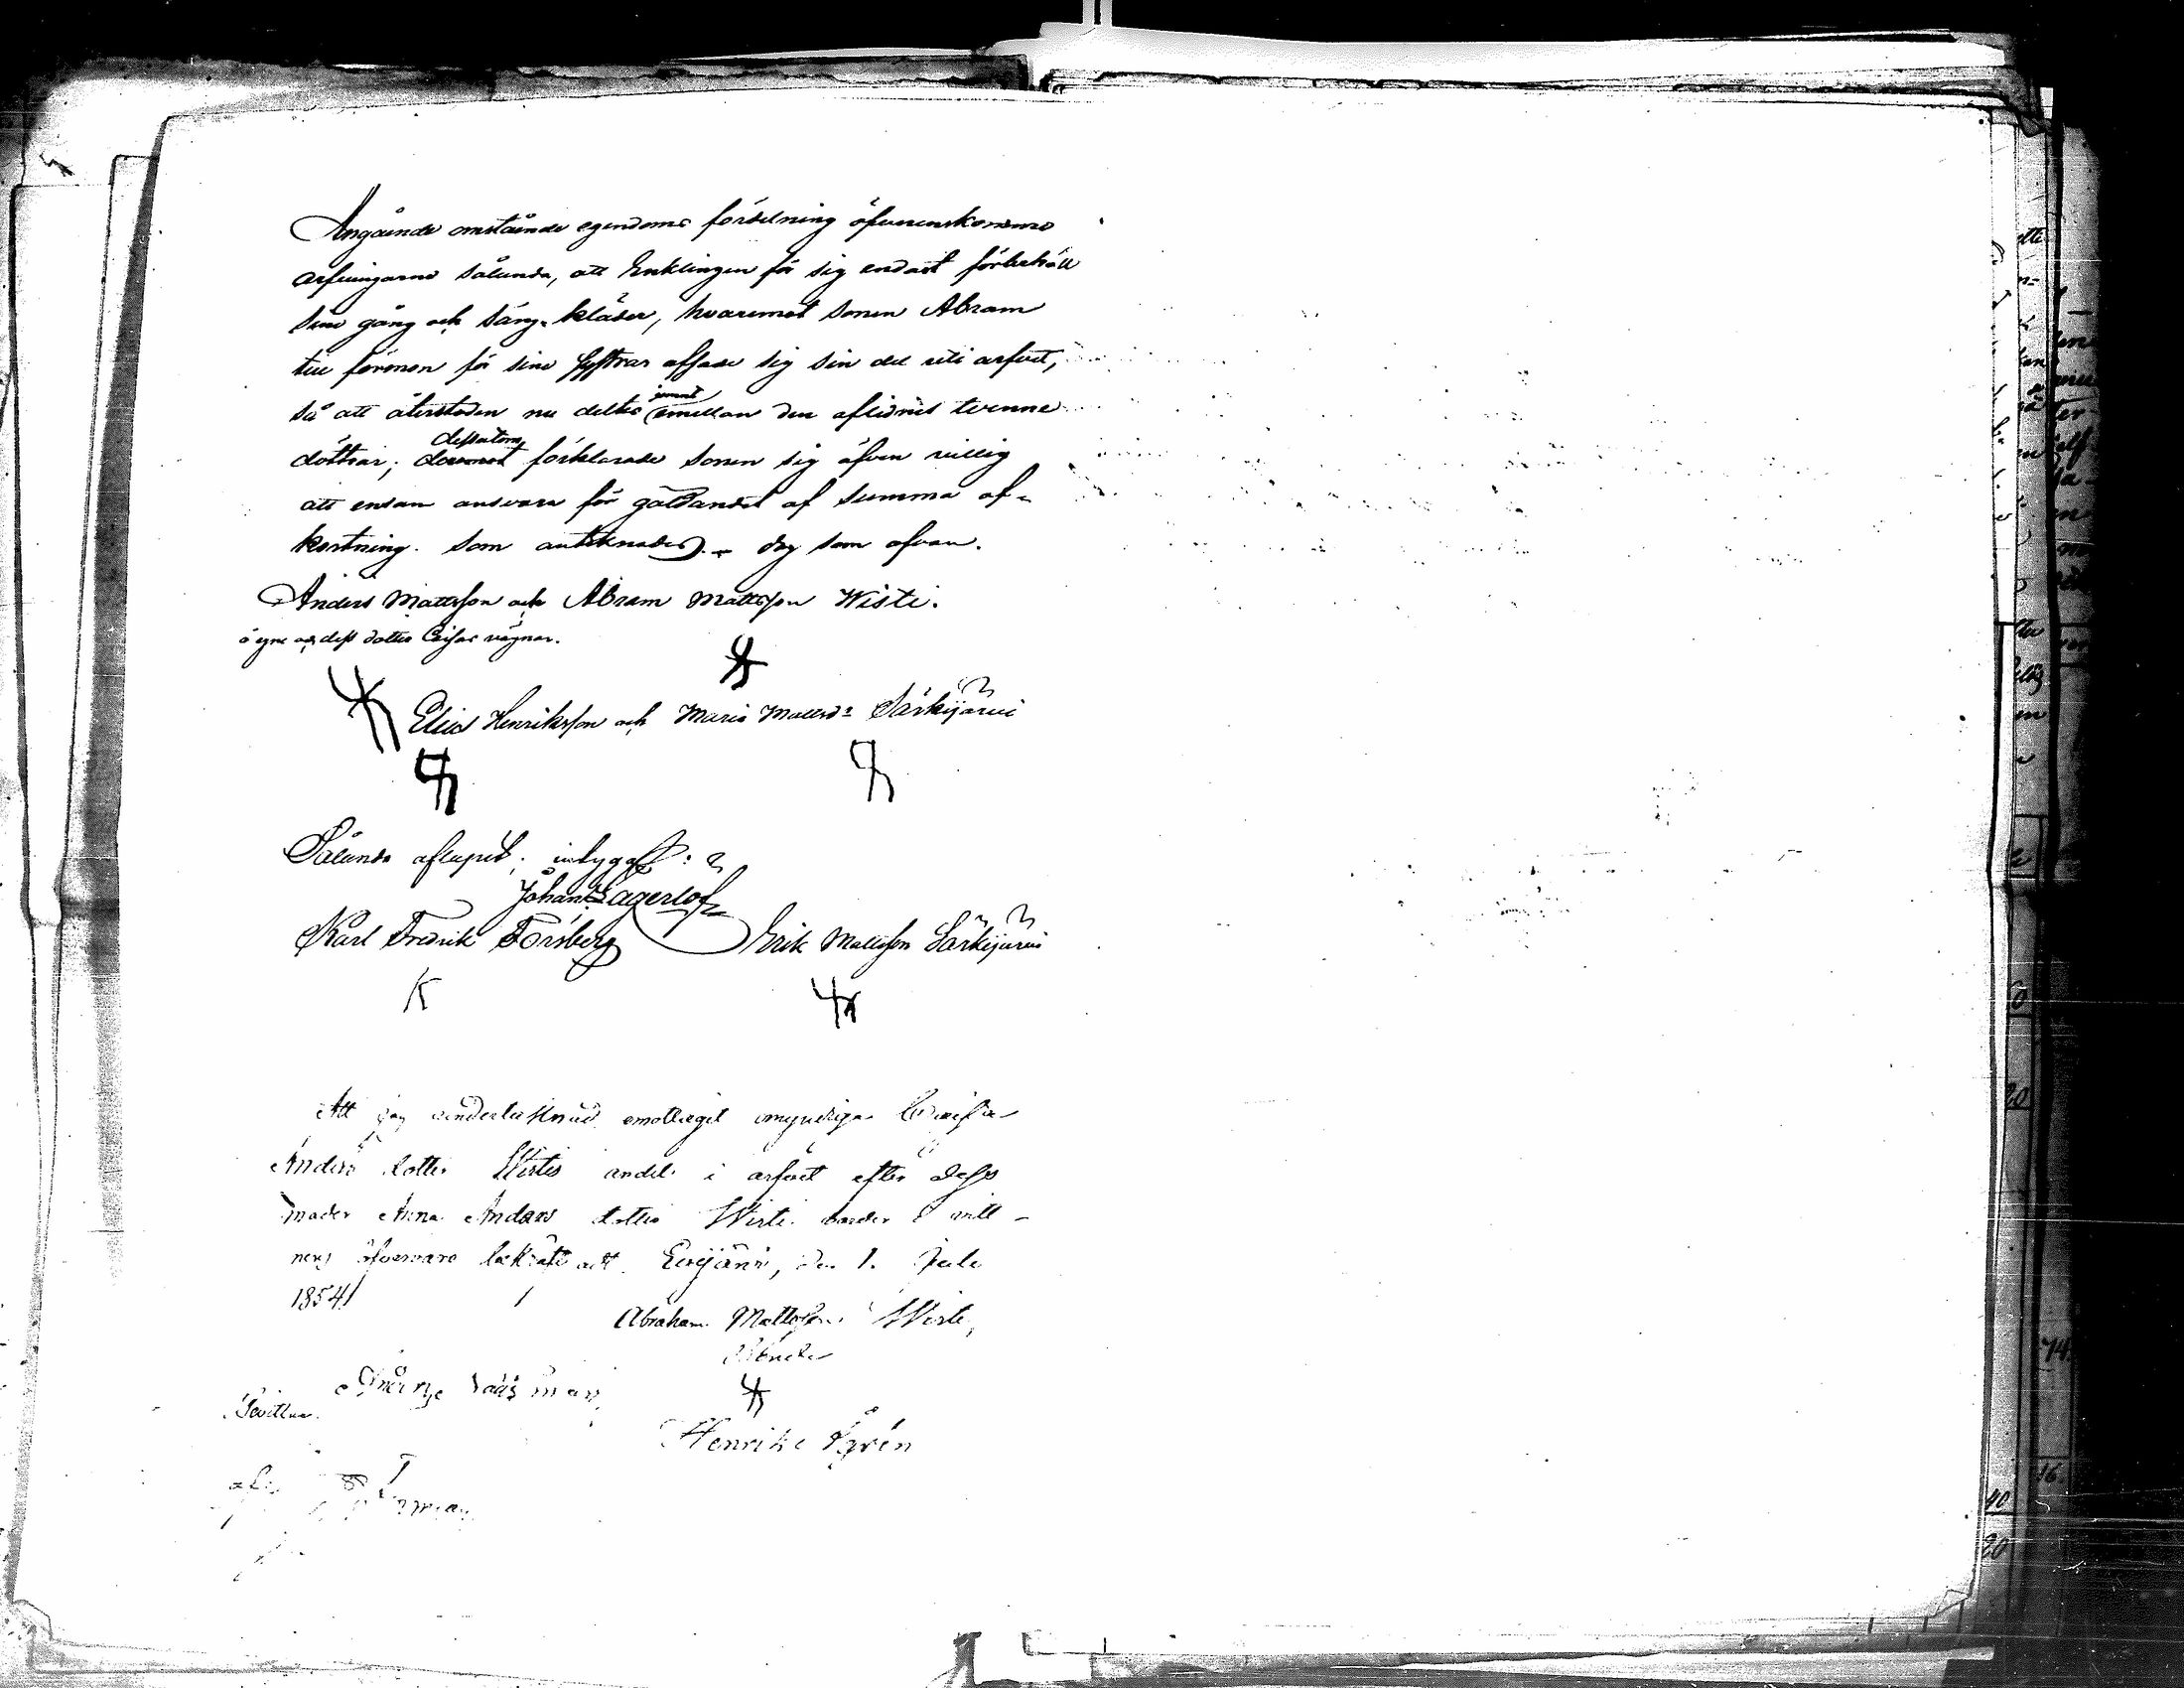 Angående omstående egendoms fördelning öfverenskommo
arfvingarne sålunda, att Enklingen för sig endast förbehöll
sine gång och säng-kläder, hvaremot sonen Abram
till förmon för sine systrar afsade sig sin del uti arfvet,
så att återstoden nu deltes jemnt emellan den aflidnes tvenne
döttrar; dessutom förklarade sonen sig äfven villig
att ensam ansvara för gäldandet af summa af-
kortning. som antecknades. - dag som ofvan.
Anders Mattsson och Abram Mattsson Wiste.
å egne och dess dotter Caisas vägnar.
Elias Henriksson och Maria Mattsdr Särkijärvi
Sålunda aflupet, intyga:
Johan Lagerlöf
Karl Fredrik Forsberg Erik Mattsson Särkijärvi
K
Att jag undertecknad emottagit omyndiga Caisa
Anders dotter Wistes andel i arfvet efter dess
moder Anna Anders dotter Wiste varder i vitt-
nens öfvervaro bekräftadt. Erkjärvi, den 1. Juli
1854.
Abraham Mattsson Wiste,
Bonde
Bevittna
Henrik Ågrén